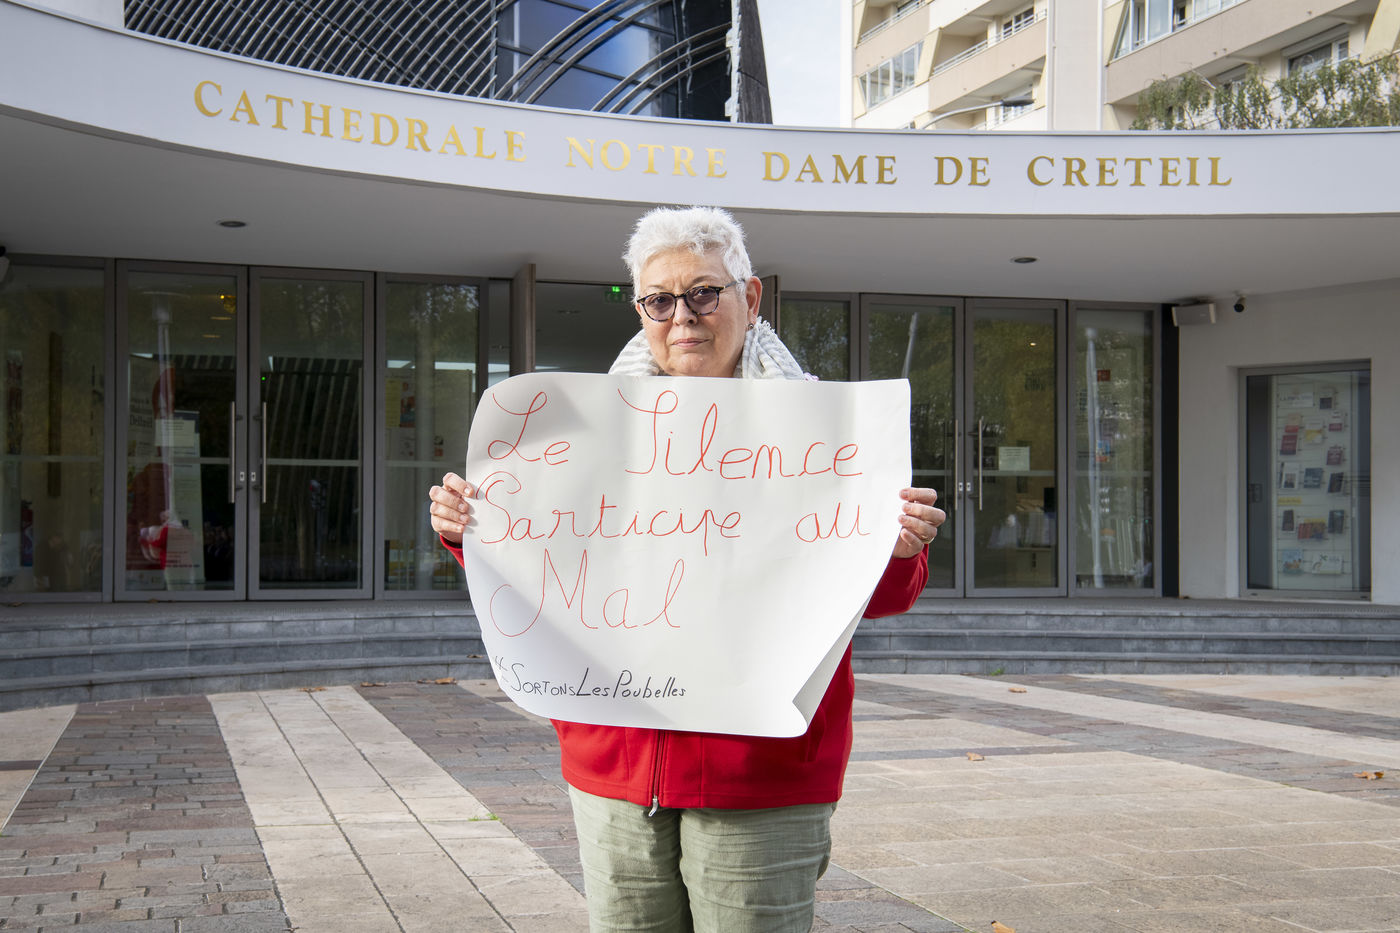 CATHEDRALE NOTRE DAME DE CRETEIL
Le Silence
Participe au
Mal
#SORTONSLesPoubelles